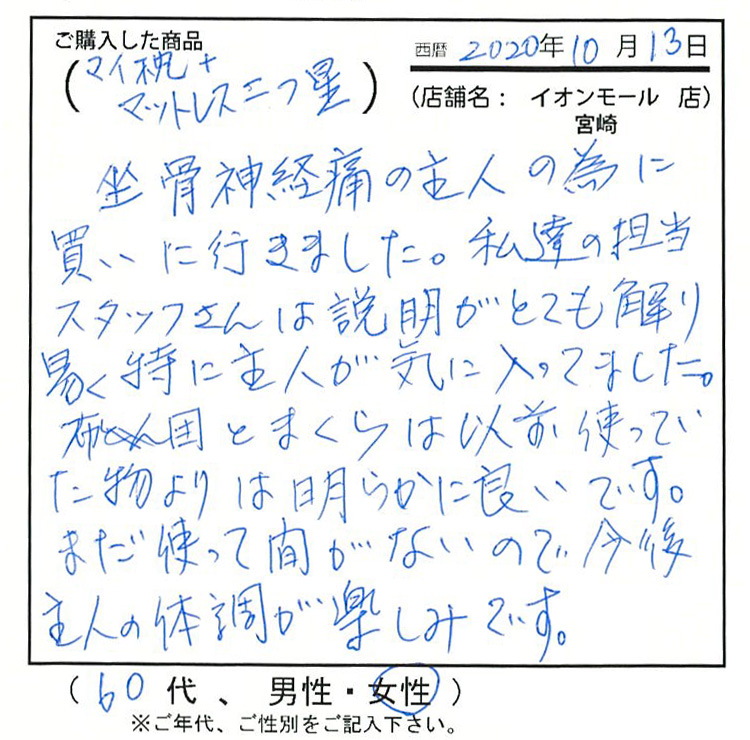 ご購入した商品
(マイ枕+
マットレス二つ星)
西暦 2020年10月13日
(店舗名： イオンモール 店)
宮崎
坐骨神経痛の主人の為に
買いに行きました。私達の担当
スタッフさんは説明がとても解り
易く特に主人が気に入ってました。
布団とまくらは以前使ってい
た物よりは明らかに良いです。
まだ使って間がないので今後
主人の体調が楽しみです。
(60代、男性・女性)
※ご年代、ご性別をご記入下さい。